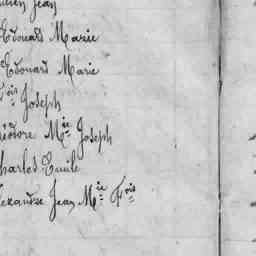 ulien Jean
Edouard Marie
Edouard Marie
çois Joseph
éodore Mie Joseph
harles Emile
lexandre Jean Mie Fois